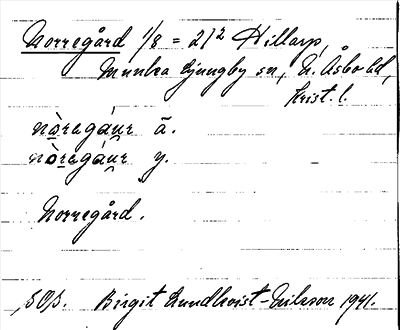 Norregård 1/8 = 2/2 Hillarp,
Munka Ljungby sn, N. Åsbo hd,
Krist. l.
nòregáur ä.
nòregáur y.
Norregård.
SOS. Birgit Lundkvist-Nilsson 1941.